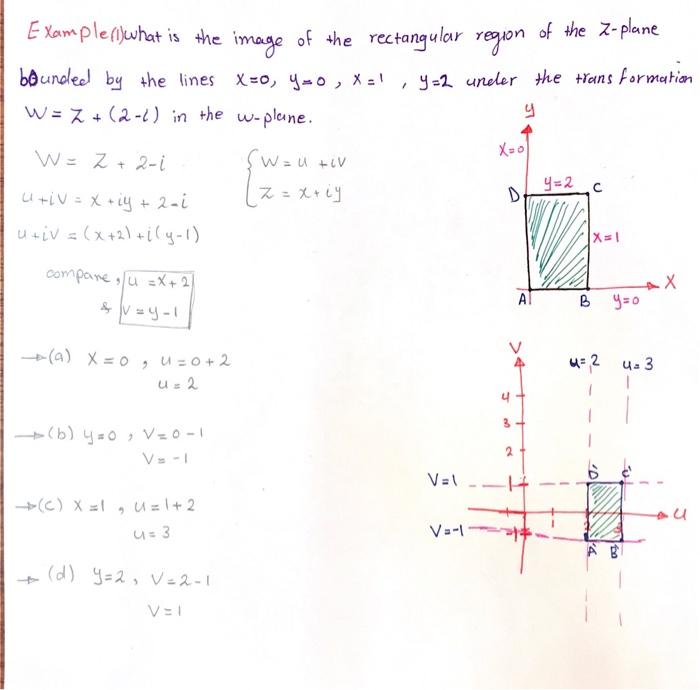 Example(1) what is the image of the rectangular region of the Z-plane
bounded by the lines x=0, y=0, x=1, y=2 under the transformation
W = Z + (2-i) in the w-plane.
W = Z + 2-i
{ W = u + iv
Z = x + iy
u + iv = x + iy + 2-i
u + iv = (x+2) + i(y-1)
compare, u = x + 2
& v = y - 1
→(a) x = 0, u = 0 + 2
u = 2
→(b) y = 0, V = 0 - 1
V = -1
→(c) x = 1, u = 1 + 2
u = 3
→(d) y = 2, V = 2 - 1
V = 1
y
x=0
D y=2 C
x=1
X
A B y=0
V
u=2 u=3
4
3
2
V=1 1 D' C'
1 2 3 u
V=-1 -1
A' B'